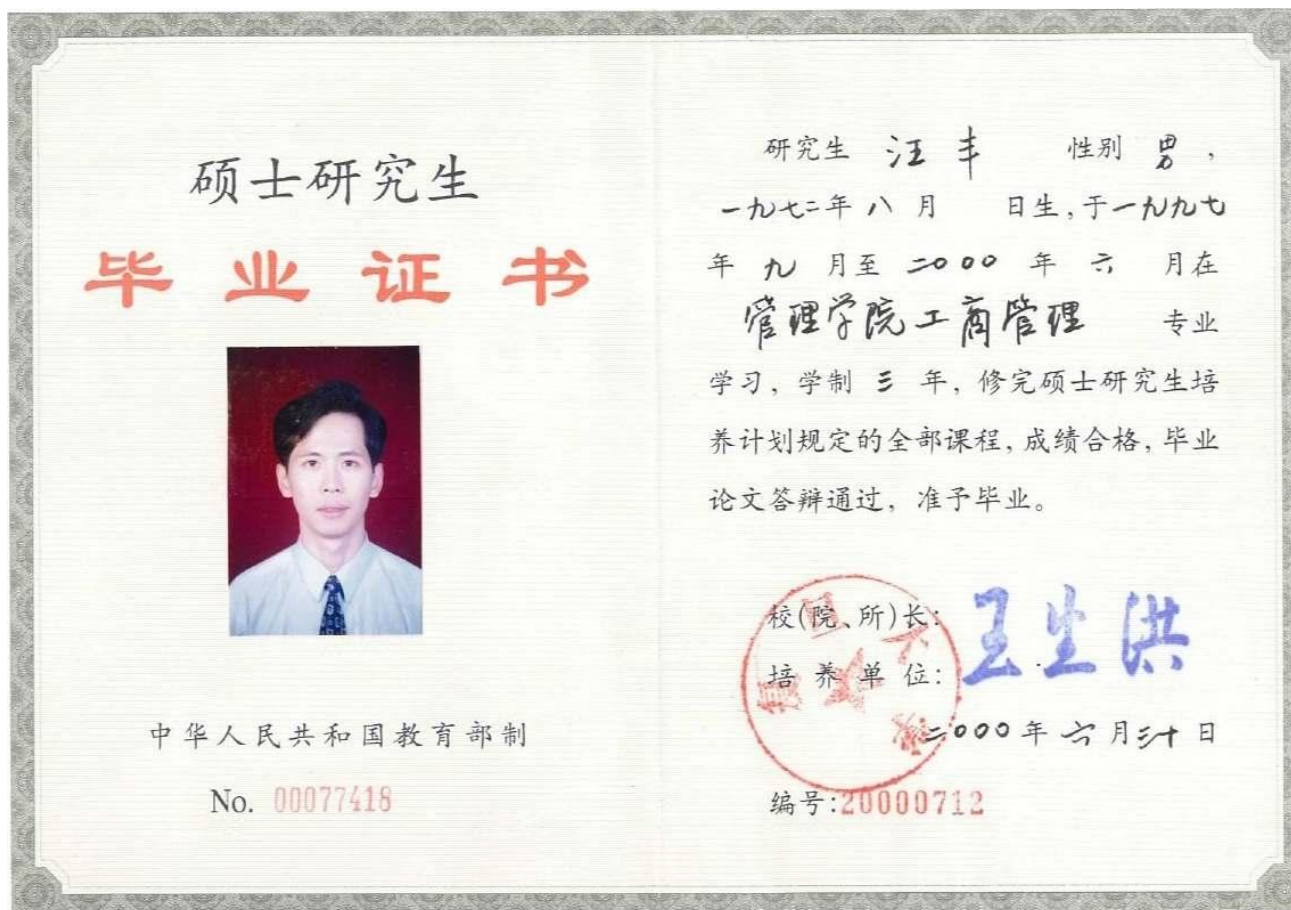 硕士研究生
毕业证书
中华人民共和国教育部制
No. 00077418
研究生 汪丰 性别 男，
一九七二年八月 日生，于一九九七
年九月至二〇〇〇年六月在
管理学院工商管理 专业
学习，学制三年，修完硕士研究生培
养计划规定的全部课程，成绩合格，毕业
论文答辩通过，准予毕业。
校(院、所)长：王生洪
培养单位：
复旦大学
二〇〇〇年六月三十日
编号：20000712